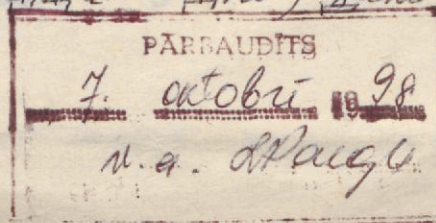 PĀRBAUDĪTS
7. oktobrī 1998
v.a.